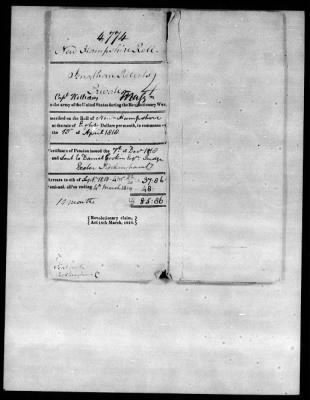 4774
New Hampshire Roll.
Jonathan Roberts
Private
Capt Williams
in the army of the United States during the Revolutionary War.
Inscribed on the Roll of New Hampshire
at the rate of Eight Dollars per month, to commence on
the 10th of April 1818
Certificate of Pension issued the 7th of Dec 1818
and sent to Daniel Esqr Judge
Arrears to 4th of Sept 1818 37.86
Semi-anl. all'ce ending 4th March 1819 48
10 months $85.86
Revolutionary claim,
Act 18th March, 1818.